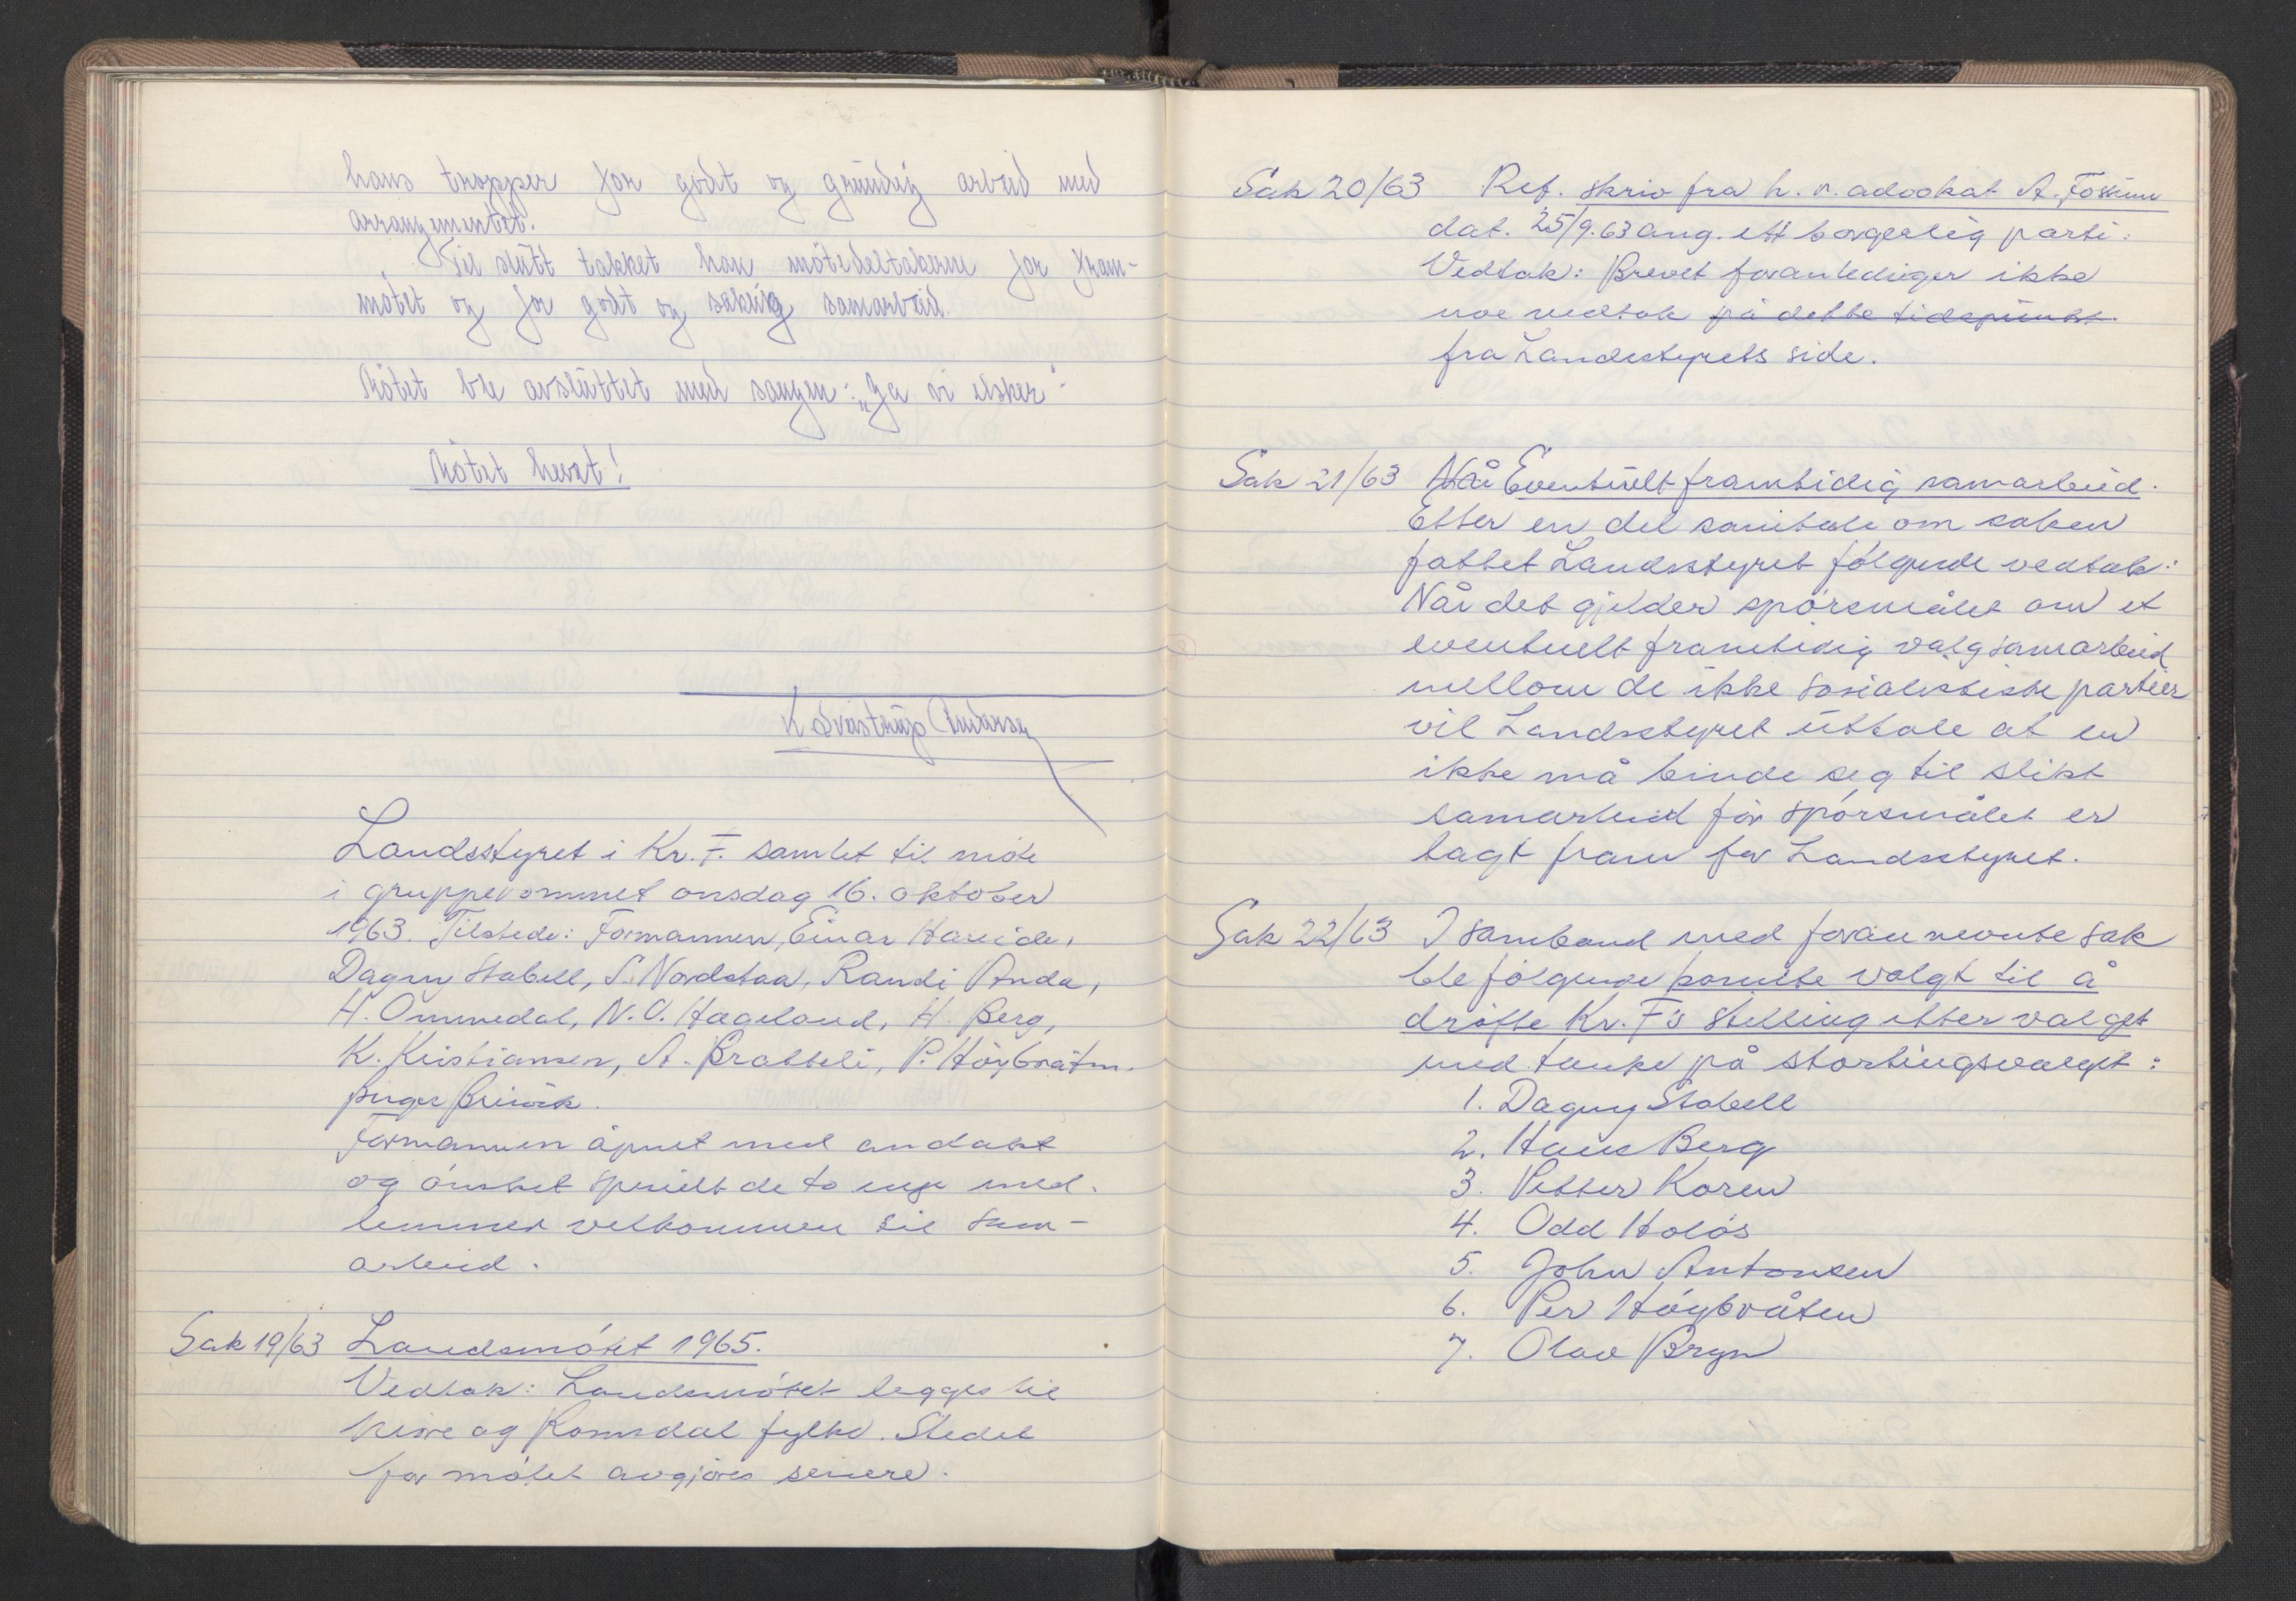 hans tropper for godt og grundig arbeid med
arrangementet.
Til slutt takket han mötedeltakerne for fram-
mötet og for godt og saklig samarbeid.
Mötet ble avsluttet med sangen: „Ja vi elsker"
Mötet hevet!
K Sveistrup Andersen
Landsstyret i Kr. F. samlet til möte
i grupperommet onsdag 16. oktober
1963. Tilstede: Formannen, Einar Hareide,
Dagny Stabell, S. Nordstaa, Randi Anda,
H. Ommedal, N. O. Hageland, H. Berg,
K. Kristiansen, A. Bratteli, P. Höybråtn.
Formannen åpnet med andakt
og önsket spesielt de to nye med-
lemmer velkommen til sam-
arbeid.
Sak 19/63 Landsmötet 1965.
Vedtak: Landsmötet legges til
Möre og Romsdal fylke. Stedet
for mötet avgjöres senere.
Sak 20/63 Ref. skriv fra h. r. advokat A. Foskum
dat. 25/9.63 ang. ett borgerlig parti:
Vedtak: Brevet foranlediger ikke
noe vedtak på dette tidspunkt.
fra Landsstyrets side.
Sak 21/63 Når Eventuelt framtidig samarbeid.
Etter en del samtale om saken
fattet Landsstyret fölgende vedtak:
Når det gjelder spörsmålet om et
eventuelt framtidig valgsamarbeid
mellom de ikke sosialistiske partier
vil Landsstyret uttale at en
ikke må binde seg til slikt
samarbeid för spörsmålet er
lagt fram for Landsstyret.
Sak 22/63 I samband med forannevnte sak
ble fölgende komite valgt til å
dröfte Kr. F's stilling etter valget
med tanke på stortingsvalget:
1. Dagny Stabell
2. Hans Berg
3. Petter Koren
4. Odd Holös
5. John Antonsen
6. Per Höybråten
7. Olav Bryn